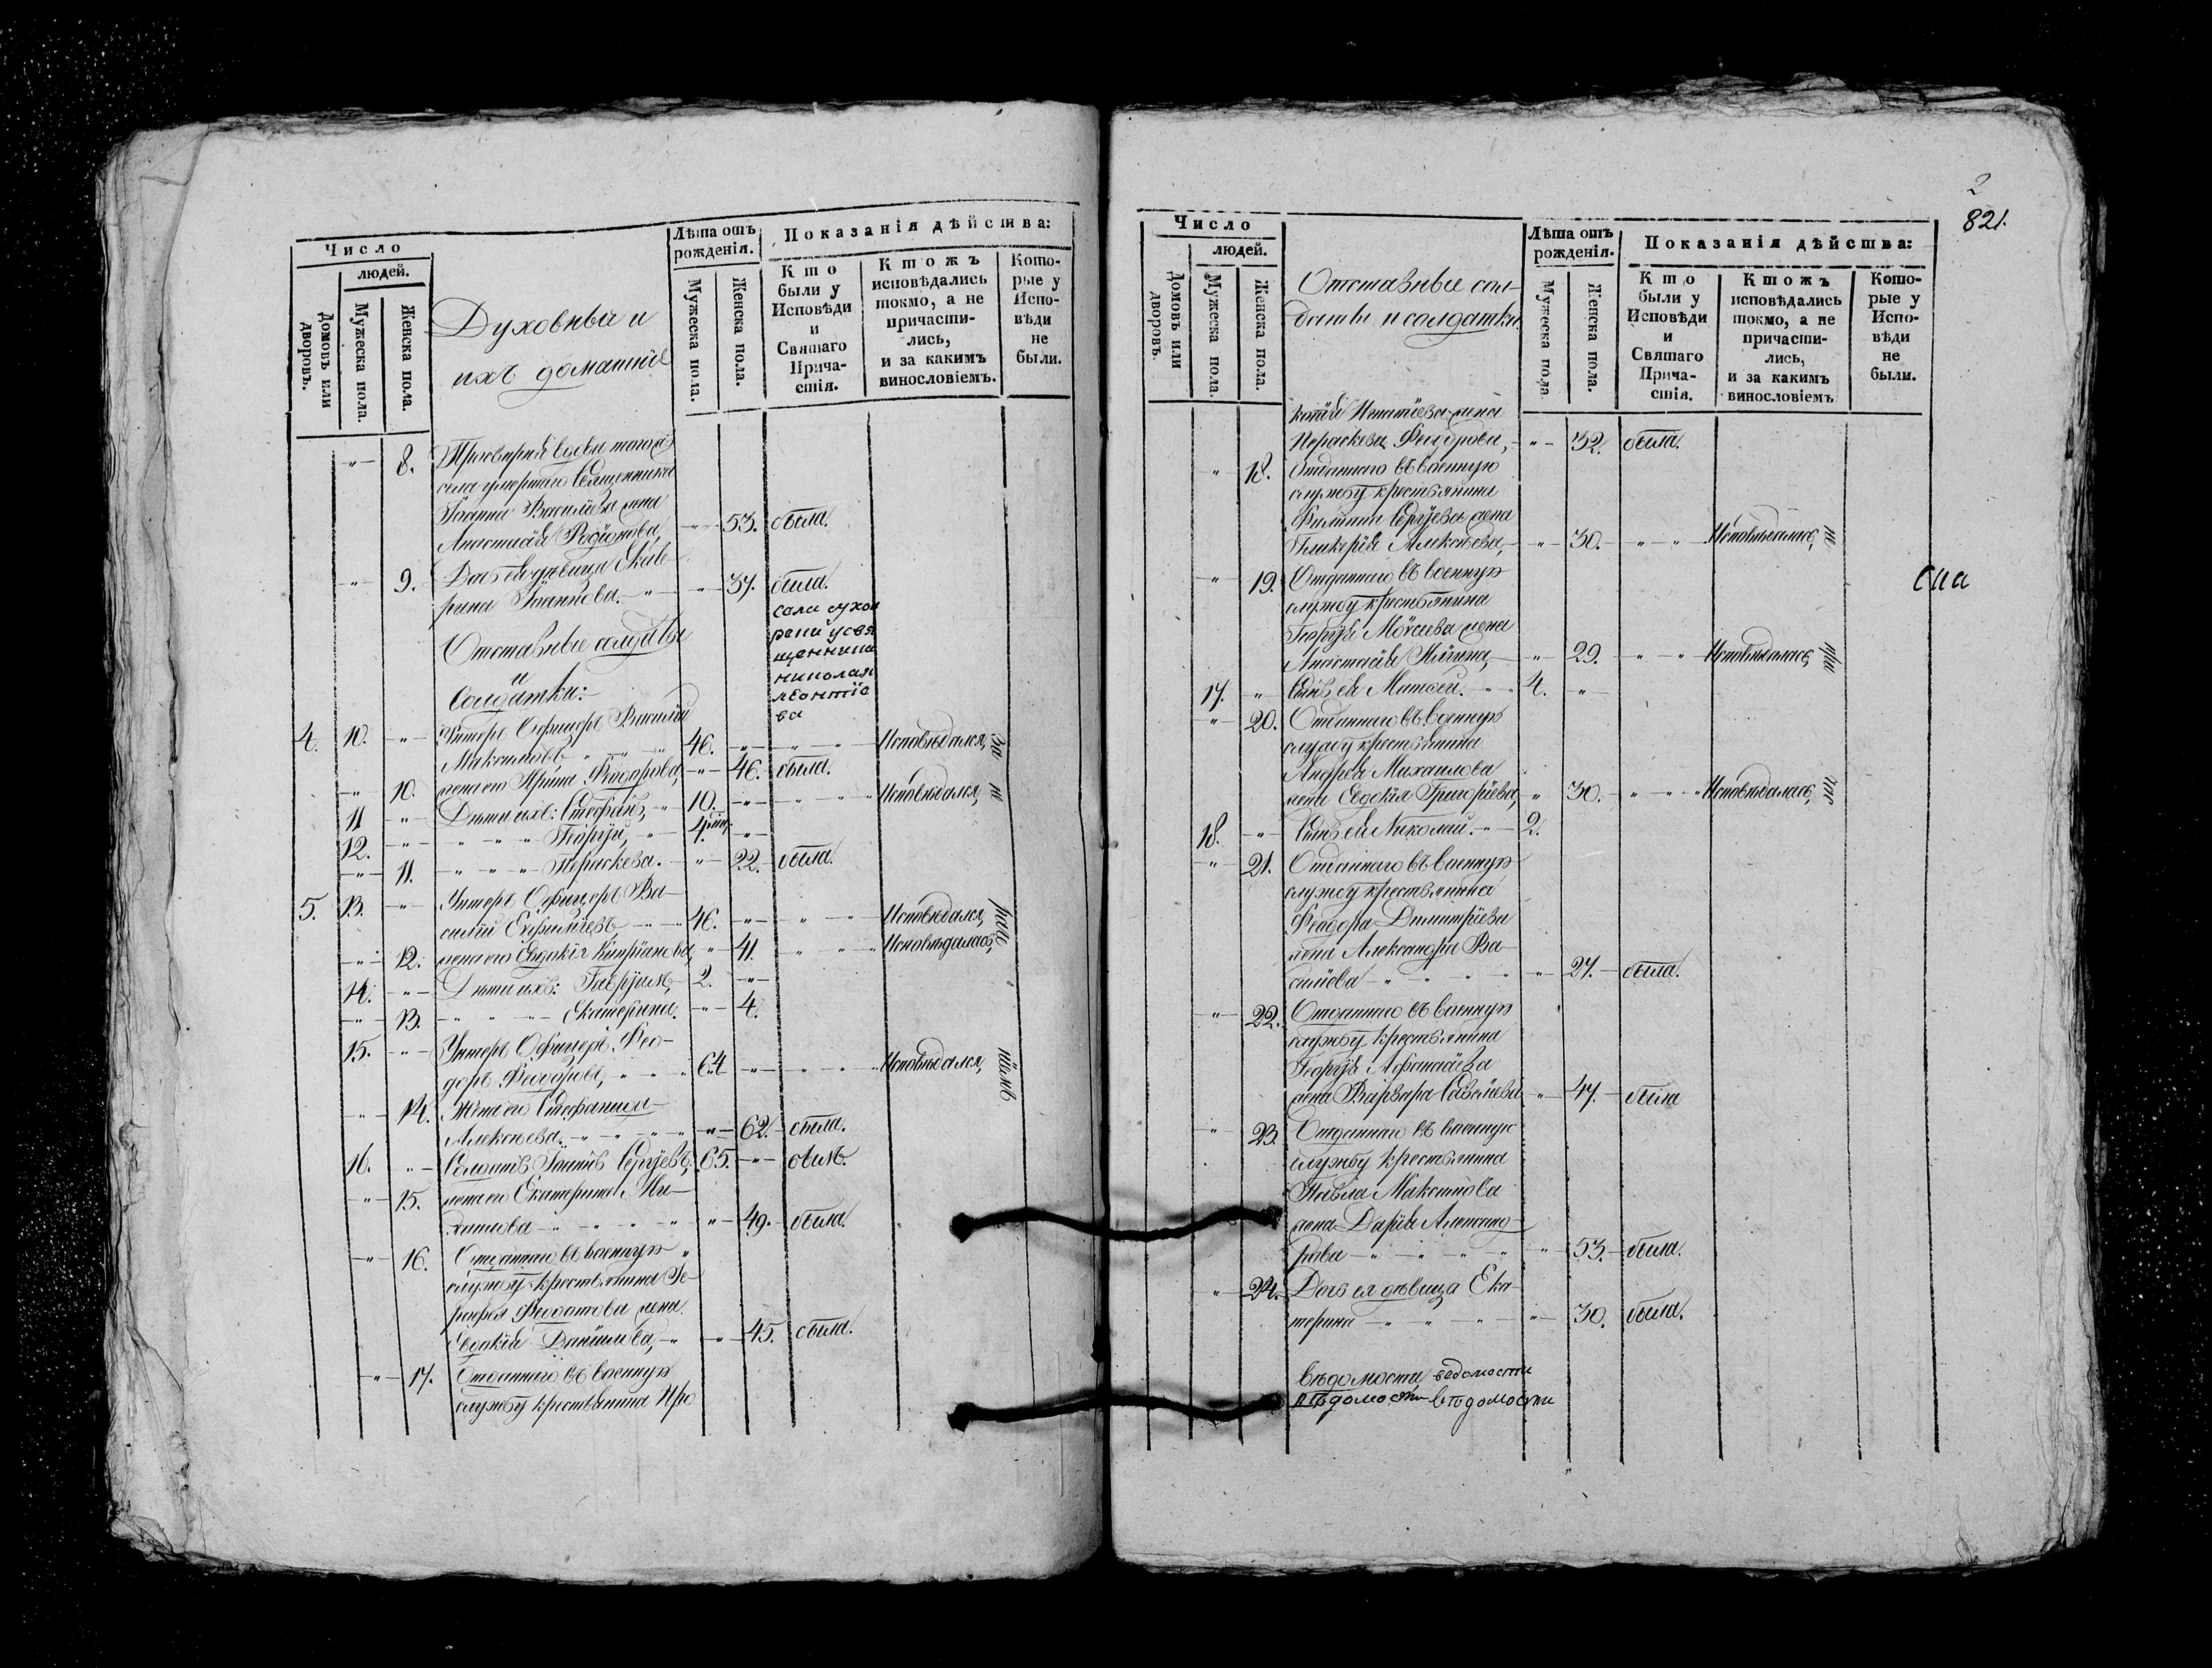 Число
людей.
Домовъ или дворовъ.
Мужеска пола.
Женска пола.
Духовныи и
ихъ домашніе
Лѣта отъ рожденія.
Мужеска пола.
Женска пола.
Показанія дѣйства:
Кто были у Исповѣди и Святаго Причастія.
Ктожъ исповѣдались токмо, а не причастились, и за какимъ винословіемъ.
Которые у Исповѣди не были.
8. вдовы тогожъ
села умершаго Священника
Іоанна Васильева жена
Анастасія Родіонова, 53. была.
9. Дочь ея дѣвица Екате-
рина Іоаннова. 37. была.
Отставные солдаты
и
Солдатки:
4. 10. Унтеръ Офицеръ Василій
Максимовъ 46. Исповѣдался, за
10. жена его Ирина Феодорова, 46. была.
11 Дѣти ихъ: Стефанъ, 10. Исповѣдался, не
12. Георгій, 4.
11. Параскева. 22. была.
5. 13. Унтеръ Офицеръ Ва-
силій 46. Исповѣдался,
12. жена его Евдокія Кипріанова, 41. Исповѣдалась,
14. Дѣти ихъ: Гавріилъ, 2.
13. Екатерина. 4.
15. Унтеръ Офицеръ Фео-
доръ Феодоровъ, 64 Исповѣдался,
14. Жена его Стефанида
Алексѣева. 62. была.
16. Солдатъ Іоаннъ Сергѣевъ, 65. былъ.
15. жена его Екатерина Ми-
49. была.
16. Отданнаго въ военную
службу крестьянина Іе-
Феодотова жена
Евдокія Даніилова, 45. была.
17. Отданнаго въ военную
службу крестьянина Про
2
821.
Число
людей.
Домовъ или дворовъ.
Мужеска пола
Женска пола.
Отставные сол-
даты и солдатки
Лѣта отъ рожденія.
Мужеска пола
Женска пола.
Показанія дѣйства:
Кто были у Исповѣди и Святаго Причастія.
Ктожъ исповѣдались токмо, а не причастились, и за какимъ винословіемъ
Которые у Исповѣди не были.
копія Игнатіева жена
Параскева Феодорова, 32. была.
18. Отданнаго въ военную
службу крестьянина
Филиппа Сергѣева жена
Гликерія Алексѣева, 30. Исповѣдалась, не
19. Отданнаго въ военную
службу крестьянина
Георгія Моѵсеева жена
Анастасія 29. Исповѣдалась, при
17. Сынъ ея Матвей. 4.
20. Отданнаго въ военную
службу крестьянина
Андрея Михаилова
жена Евдокія Григорьева, 30. Исповѣдалась,
18. Сынъ ея Николай. 2.
21. Отданнаго въ военную
службу крестьянина
Феодора Димитріева
жена Александра Ва-
сильева 27. была.
22. Отданнаго въ военную
службу крестьянина
Георгія Афанасьева
жена Варвара Савельева 47. была
23. Отданнаго въ военную
службу крестьянина
Павла Максимова
жена Дарія Александ-
рова 53. была.
24. Дочь ея дѣвица Ека-
терина 30. была.
вѣдомости ведомости
вѣдомости вѣдомости